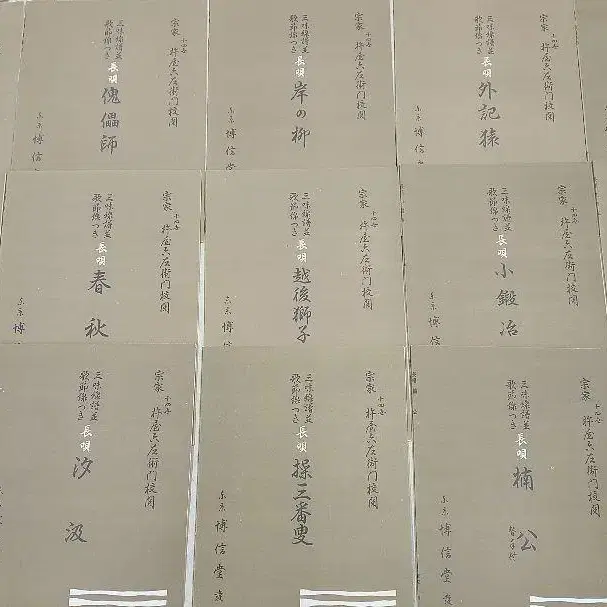 宗家 十四世 杵屋六左衛門校閲
三味線譜並
歌節線つき
長唄 傀儡師
東京 博信堂
宗家 十四世 杵屋六左衛門校閲
三味線譜並
歌節線つき
長唄 岸の柳
東京 博信堂
宗家 十四世 杵屋六左衛門校閲
三味線譜並
歌節線つき
長唄 外記猿
東京 博信堂
宗家 十四世 杵屋六左衛門校閲
三味線譜並
歌節線つき
長唄 春秋
東京 博
宗家 十四世 杵屋六左衛門校閲
三味線譜並
歌節線つき
長唄 越後獅子
東京 博信
宗家 十四世 杵屋六左衛門校閲
三味線譜並
歌節線つき
長唄 小鍛冶
東京 博信
宗家 十四世 杵屋六左衛門校閲
三味線譜並
歌節線つき
長唄 汐汲
宗家 十四世 杵屋六左衛門校閲
三味線譜並
歌節線つき
長唄 操三番叟
東京 博信堂 發
宗家 十四世 杵屋六左衛門校閲
三味線譜並
歌節線つき
長唄 楠公
東京 博信堂 發